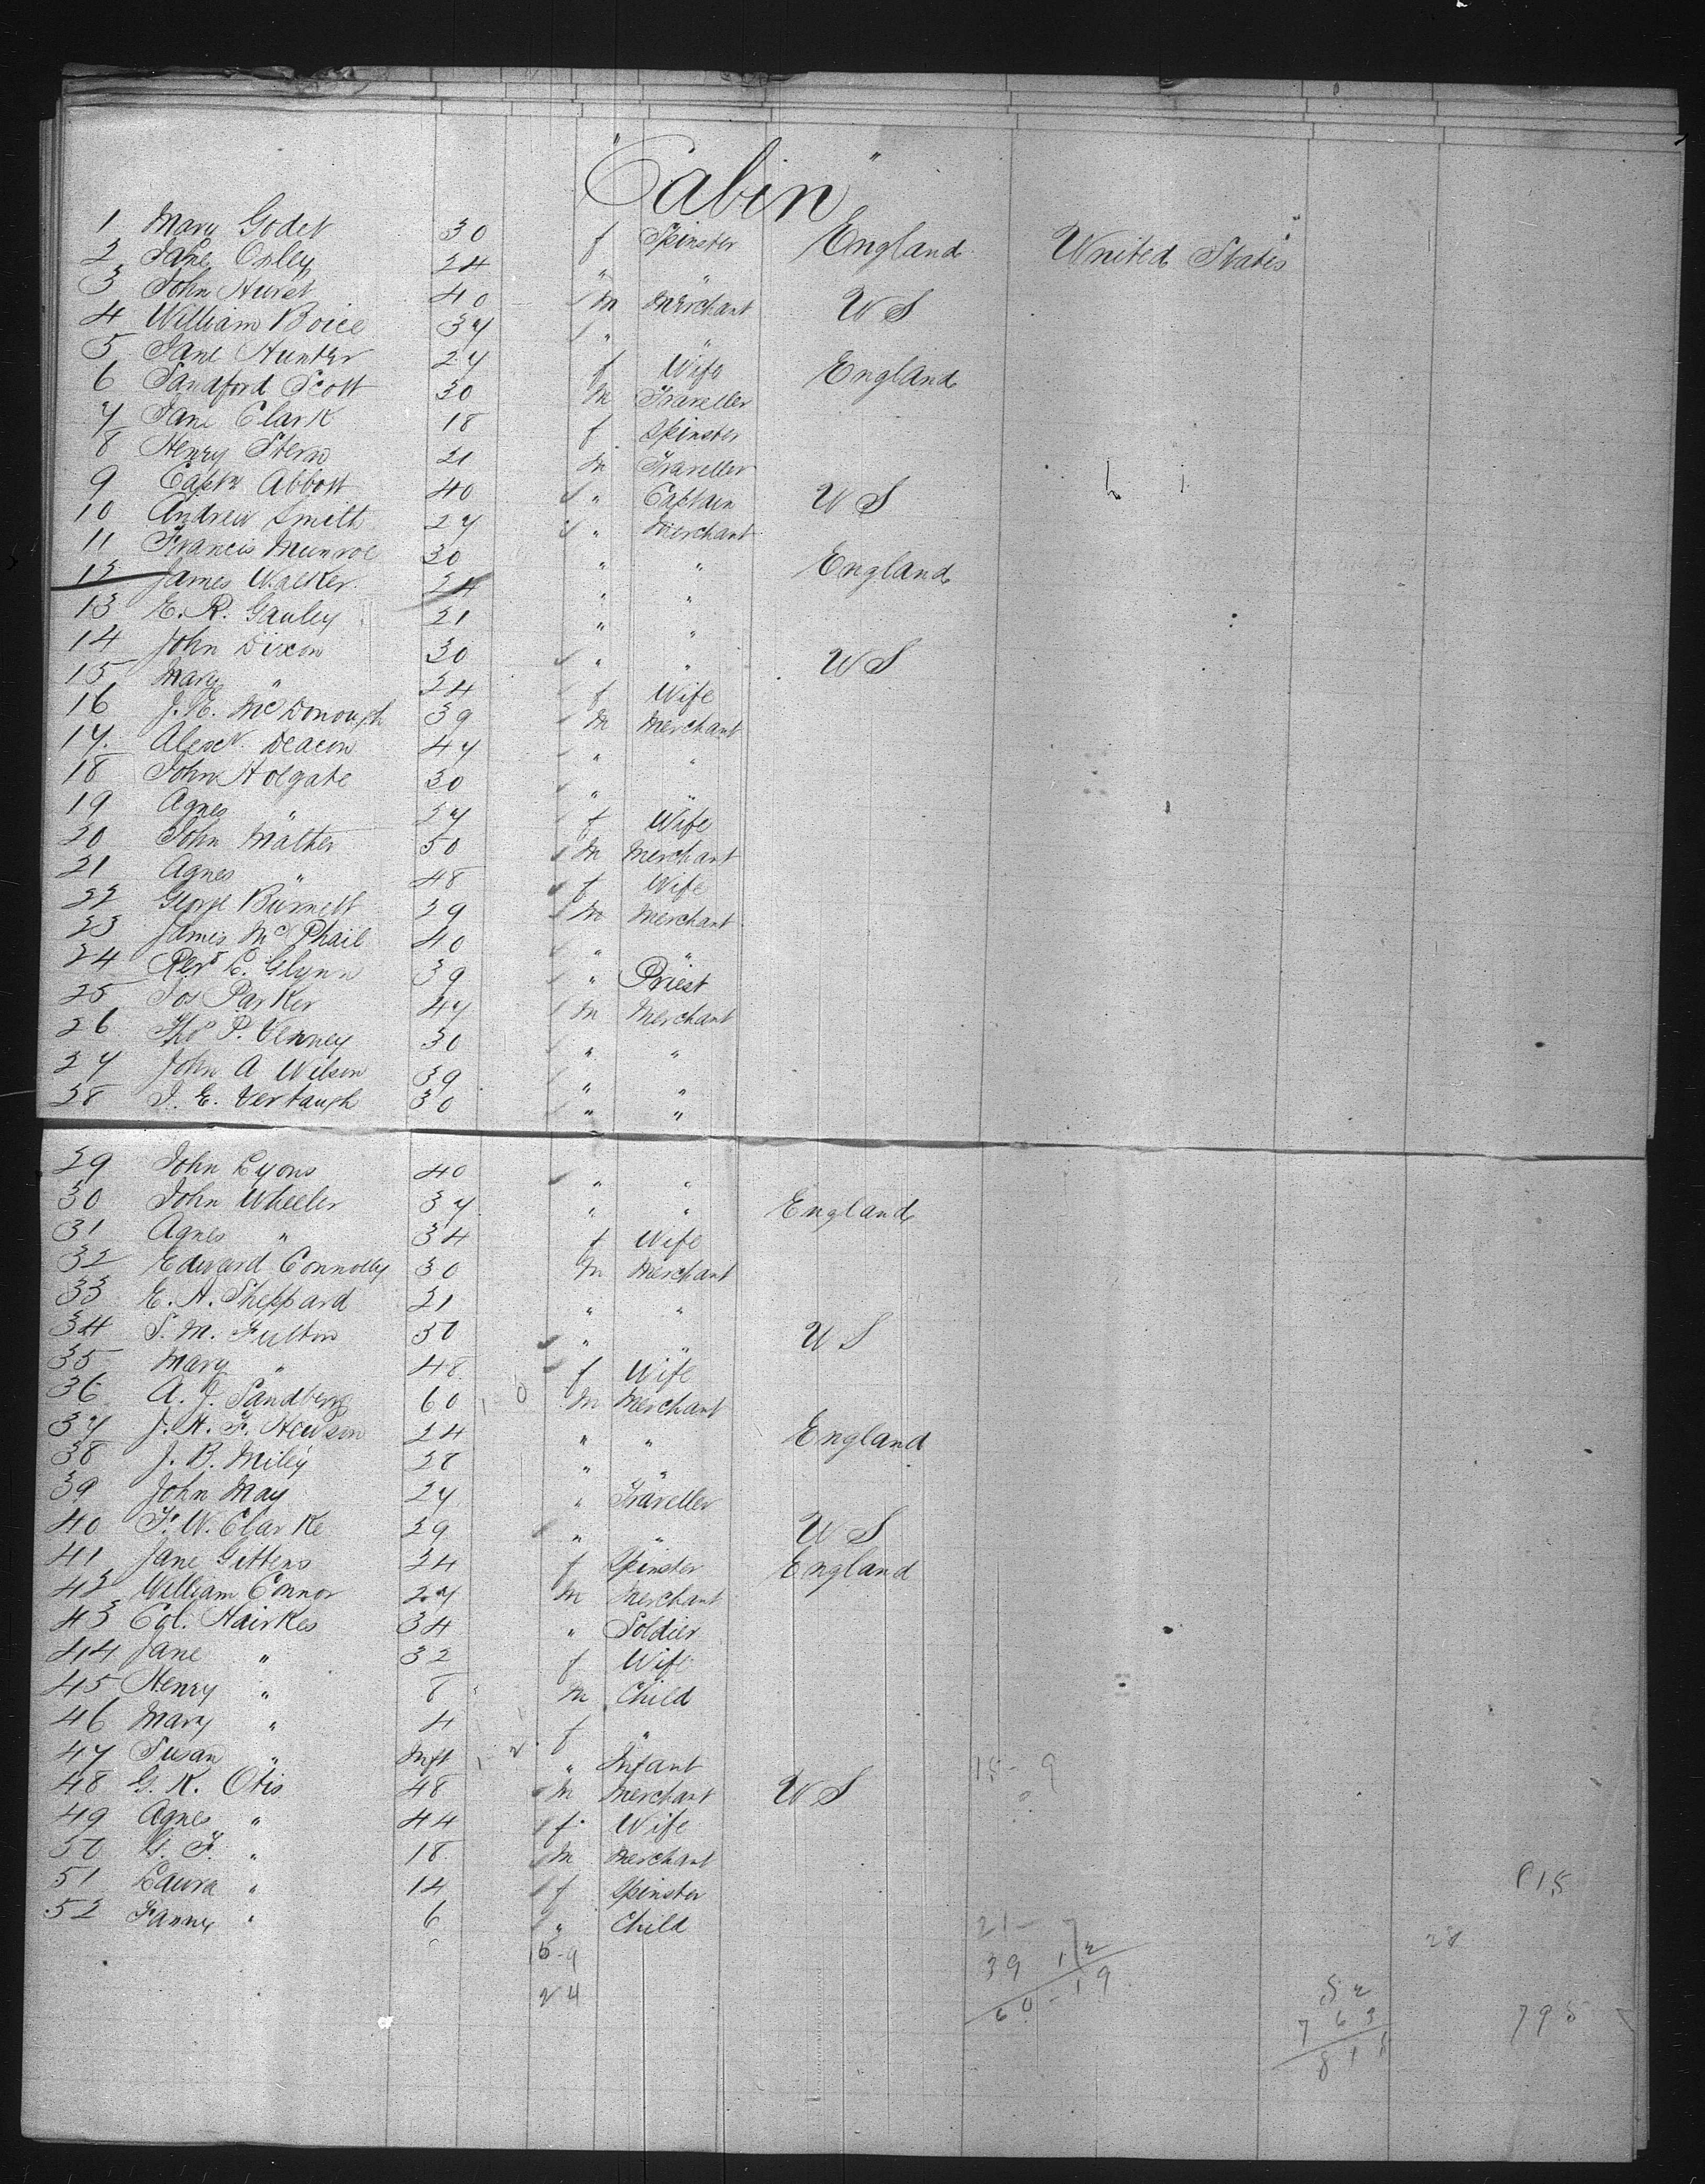 "Cabin"
1 Mary Godet 30 f Spinster England United States
2 Jane Onley 24 " "
3 John Hurst 40 M Merchant U S
4 William Boice 37 " "
5 Jane Hunter 27 f Wife England
6 Sandford Scott 30 M Traveller
7 Jane Clark 18 f Spinster
8 Henry Stern 21 M Traveller
9 Captn Abbott 40 " Captain U S
10 Andrew Smith 27 " Merchant
11 Francis Munroe 30 " " England
12 James Walker 24 " "
13 E. R. Gauley 21 " "
14 John Dixon 30 " " U S
15 Mary " 24 f Wife
16 J. E. McDonough 39 M Merchant
17. Alexr. Deacon 47 " "
18 John Holgate 30 " "
19 Agnes " 27 f Wife
20 John Mather 50 M Merchant
21 Agnes " 48 f Wife
22 George Burnett 29 M Merchant
23 James McPhail 40 " "
24 Revd C. Glynn 39 " Priest
25 Jos Parker 47 M Merchant
26 Thos P. Venney 30 " "
27 John A Wilson 39 " "
28 J. E. Verbaugh 30 " "
29 John Lyons 40 " "
30 John Wheeler 37 " " England
31 Agnes " 34 f Wife
32 Edward Connolly 30 M Merchant
33 E. A. Sheppard 21 " "
34 S. M. Fulton 50 " " U S
35 Mary " 48 f Wife
36 A. J. Sandberg 60 M Merchant
37 J. H. F. Hewson 24 " " England
38 J. B. Miley 28 " "
39 John May 27 " Traveller
40 F. W. Clarke 29 " " U S
41 Jane Gittens 24 f Spinster England
42 William Connor 27 M Merchant
43 Col. Hairkes 34 " Soldier
44 Jane " 32 f Wife
45 Henry " 8 M Child
46 Mary " 4 f "
47 Susan " Inft " Infant 15-9
48 G. K. Otis 48 M Merchant U S
49 Agnes " 44 f Wife
50 G. F. " 18 M Merchant
51 Laura " 14 f Spinster 815
52 Fanny " 6 " Child 21-7
39 12
60-19
52
763
815
795